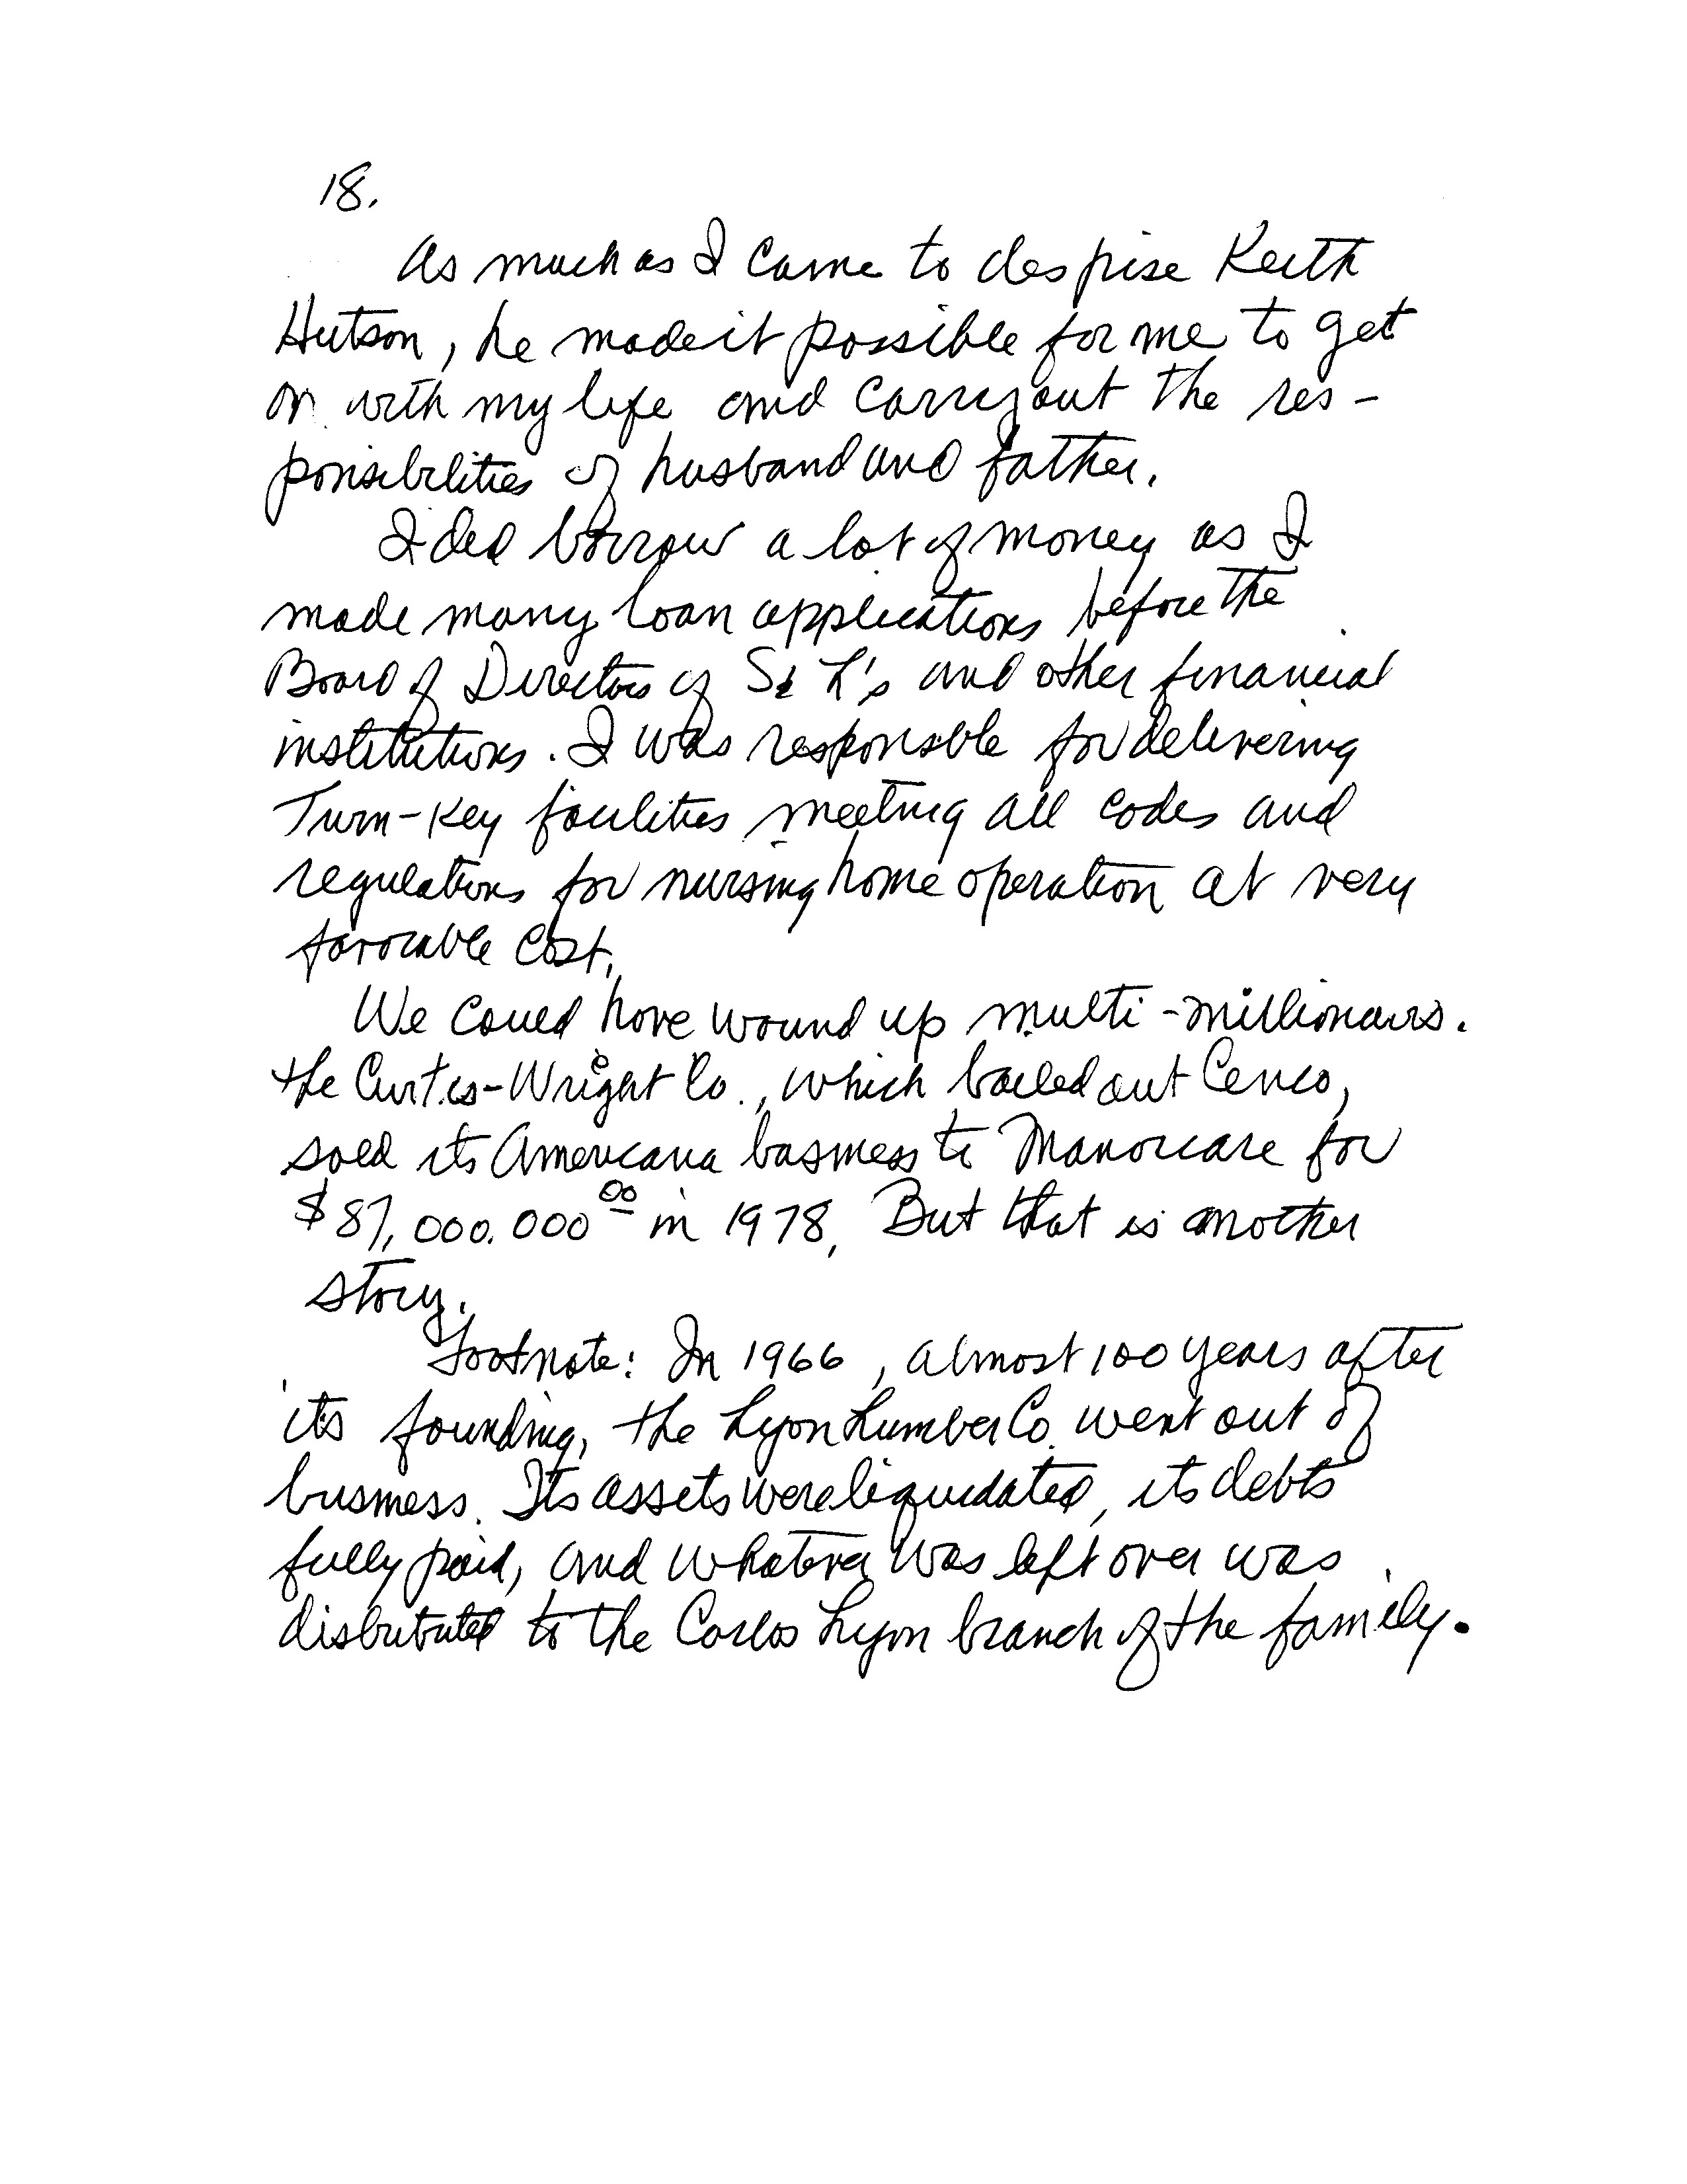 18.
As much as I came to despise Keith
Hutson, he made it possible for me to get
on with my life and carry out the res-
ponsibilities of husband and father.
I did borrow a lot of money as I
made many loan applications before the
Board of Directors of S & L's and other financial
institutions. I was responsible for delivering
Turn-Key facilities meeting all codes and
regulations for nursing home operation at very
favorable cost.
We could have wound up multi-millionairs.
the Curtis-Wright Co., which bailed out Cenco,
sold its Americana business to Manorcare for
$87,000.000 00 in 1978. But that is another
story.
Footnote: In 1966, almost 100 years after
its founding, the Lyon Lumber Co. went out of
business. Its assets were liquidated, its debts
fully paid, and whatever was left over was
disbributed to the Carlos Lyon branch of the family.